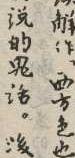 解作　西方色也
说的鬼话。後